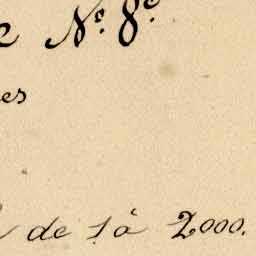 e N.º 8.º
es
de 1 à 2000.